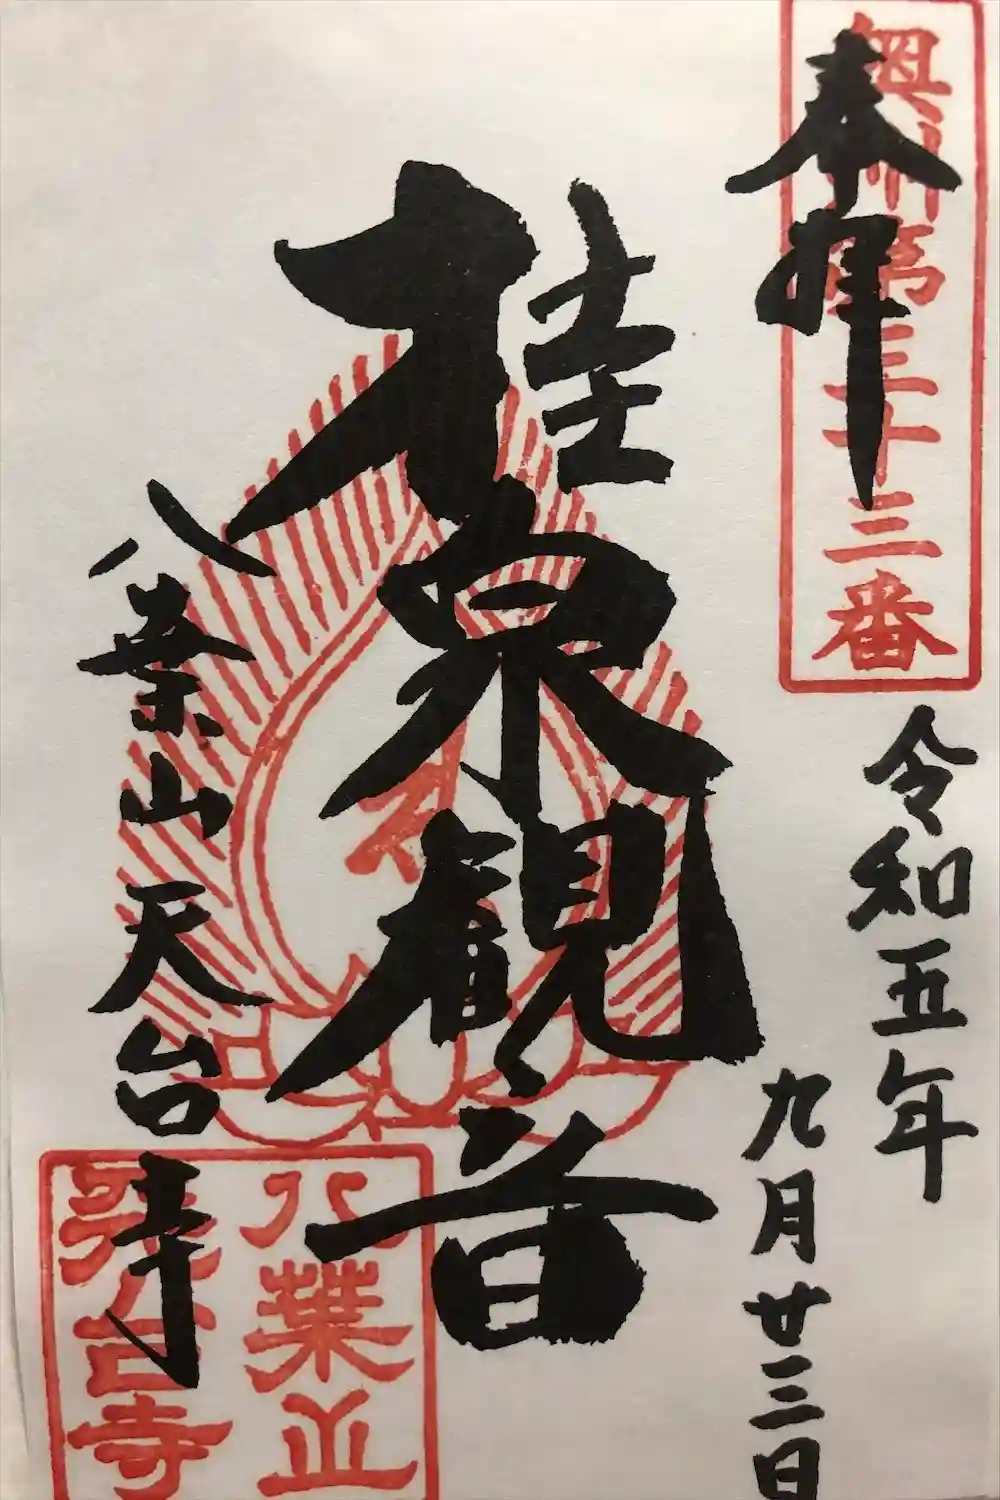 奥州第三十三番
奉拝
令和五年
九月廿三日
桂泉観音
八葉山天台寺
八葉山
天台寺